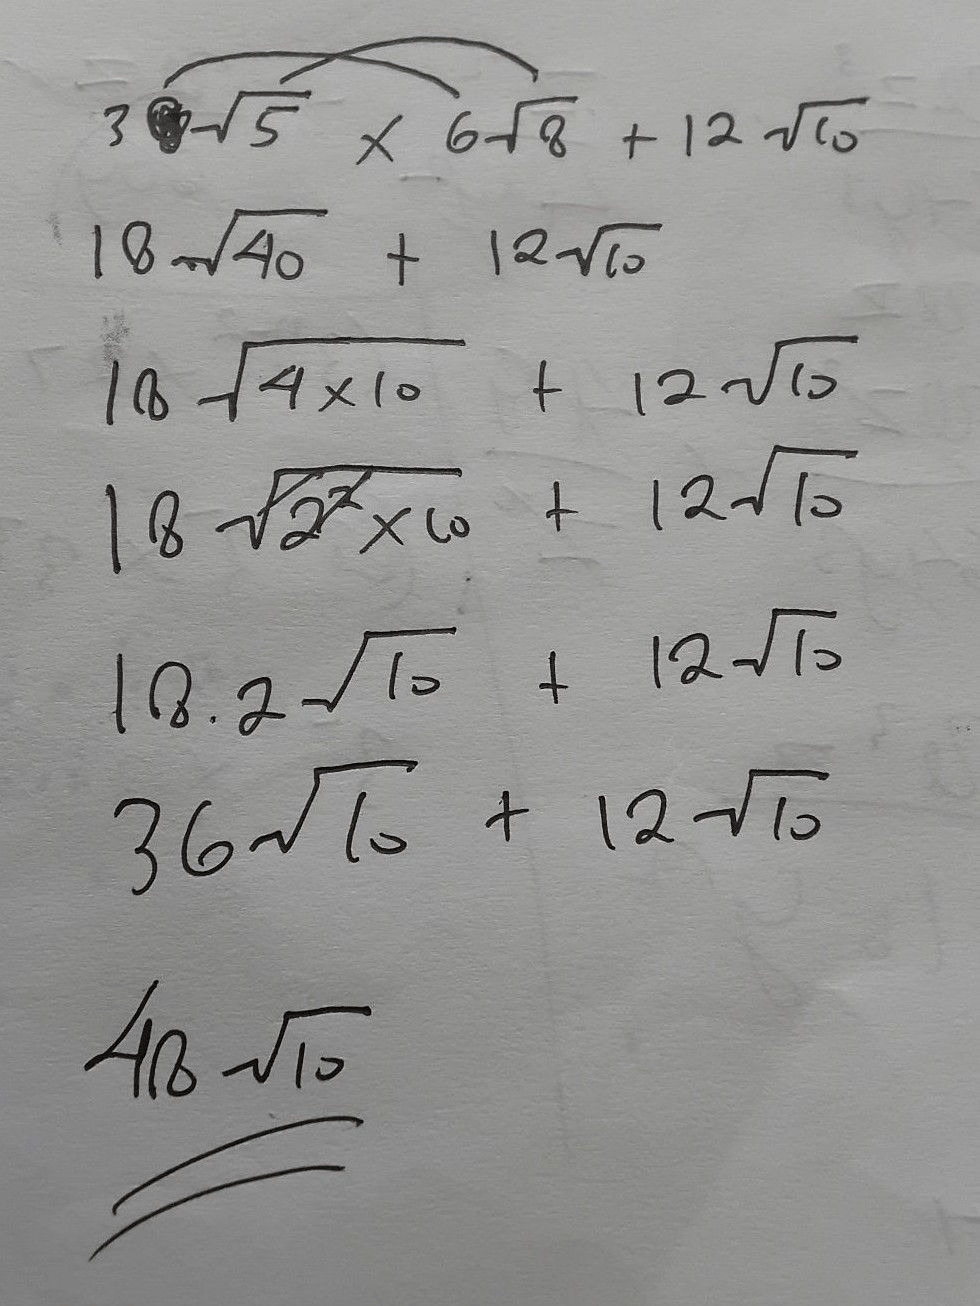 3√5 × 6√8 + 12√10
18√40 + 12√10
18√4×10 + 12√10
18√2²×10 + 12√10
18.2√10 + 12√10
36√10 + 12√10
48√10